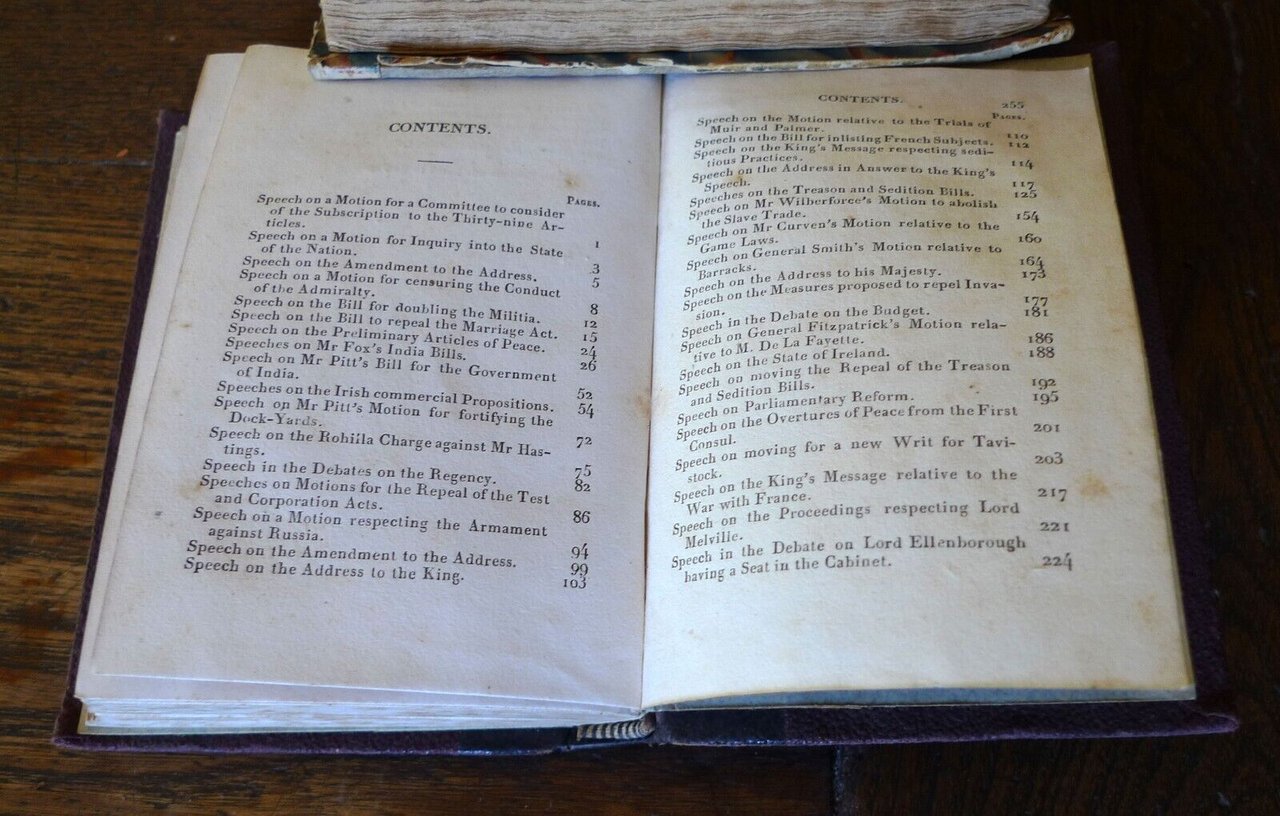 CONTENTS.
PAGES.
Speech on a Motion for a Committee to consider
of the Subscription to the Thirty-nine Ar-
ticles. 1
Speech on a Motion for Inquiry into the State
of the Nation. 3
Speech on the Amendment to the Address. 5
Speech on a Motion for censuring the Conduct
of the Admiralty. 8
Speech on the Bill for doubling the Militia. 12
Speech on the Bill to repeal the Marriage Act. 15
Speech on the Preliminary Articles of Peace. 24
Speeches on Mr Fox's India Bills. 26
Speech on Mr Pitt's Bill for the Government
of India. 52
Speeches on the Irish commercial Propositions. 54
Speech on Mr Pitt's Motion for fortifying the
Dock-Yards. 72
Speech on the Rohilla Charge against Mr Has-
tings. 75
Speech in the Debates on the Regency. 82
Speeches on Motions for the Repeal of the Test
and Corporation Acts. 86
Speech on a Motion respecting the Armament
against Russia. 94
Speech on the Amendment to the Address. 99
Speech on the Address to the King. 103
CONTENTS. 255
PAGES.
Speech on the Motion relative to the Trials of
Muir and Palmer. 110
Speech on the Bill for inlisting French Subjects. 112
Speech on the King's Message respecting sedi-
tious Practices. 114
Speech on the Address in Answer to the King's
Speech. 117
Speeches on the Treason and Sedition Bills. 125
Speech on Mr Wilberforce's Motion to abolish
the Slave Trade. 154
Speech on Mr Curven's Motion relative to the
Game Laws. 160
Speech on General Smith's Motion relative to
Barracks. 164
Speech on the Address to his Majesty. 173
Speech on the Measures proposed to repel Inva-
sion. 177
Speech in the Debate on the Budget. 181
Speech on General Fitzpatrick's Motion rela-
tive to M. De La Fayette. 186
Speech on the State of Ireland. 188
Speech on moving the Repeal of the Treason
and Sedition Bills. 192
Speech on Parliamentary Reform. 195
Speech on the Overtures of Peace from the First
Consul. 201
Speech on moving for a new Writ for Tavi-
stock. 203
Speech on the King's Message relative to the
War with France. 217
Speech on the Proceedings respecting Lord
Melville. 221
Speech in the Debate on Lord Ellenborough
having a Seat in the Cabinet. 224